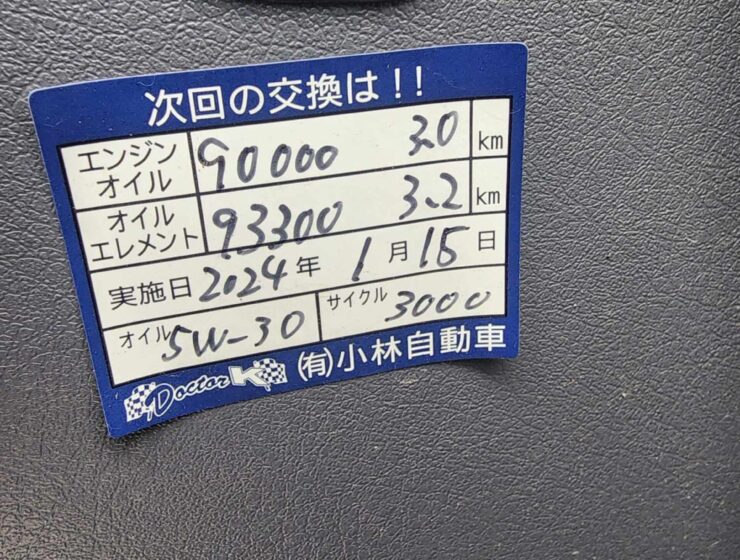 次回の交換は!!
エンジンオイル 90000 3.0 km
オイルエレメント 93300 3.2 km
実施日 2024年 1月 15日
オイル 5W-30 サイクル 3000
Doctor K (有)小林自動車